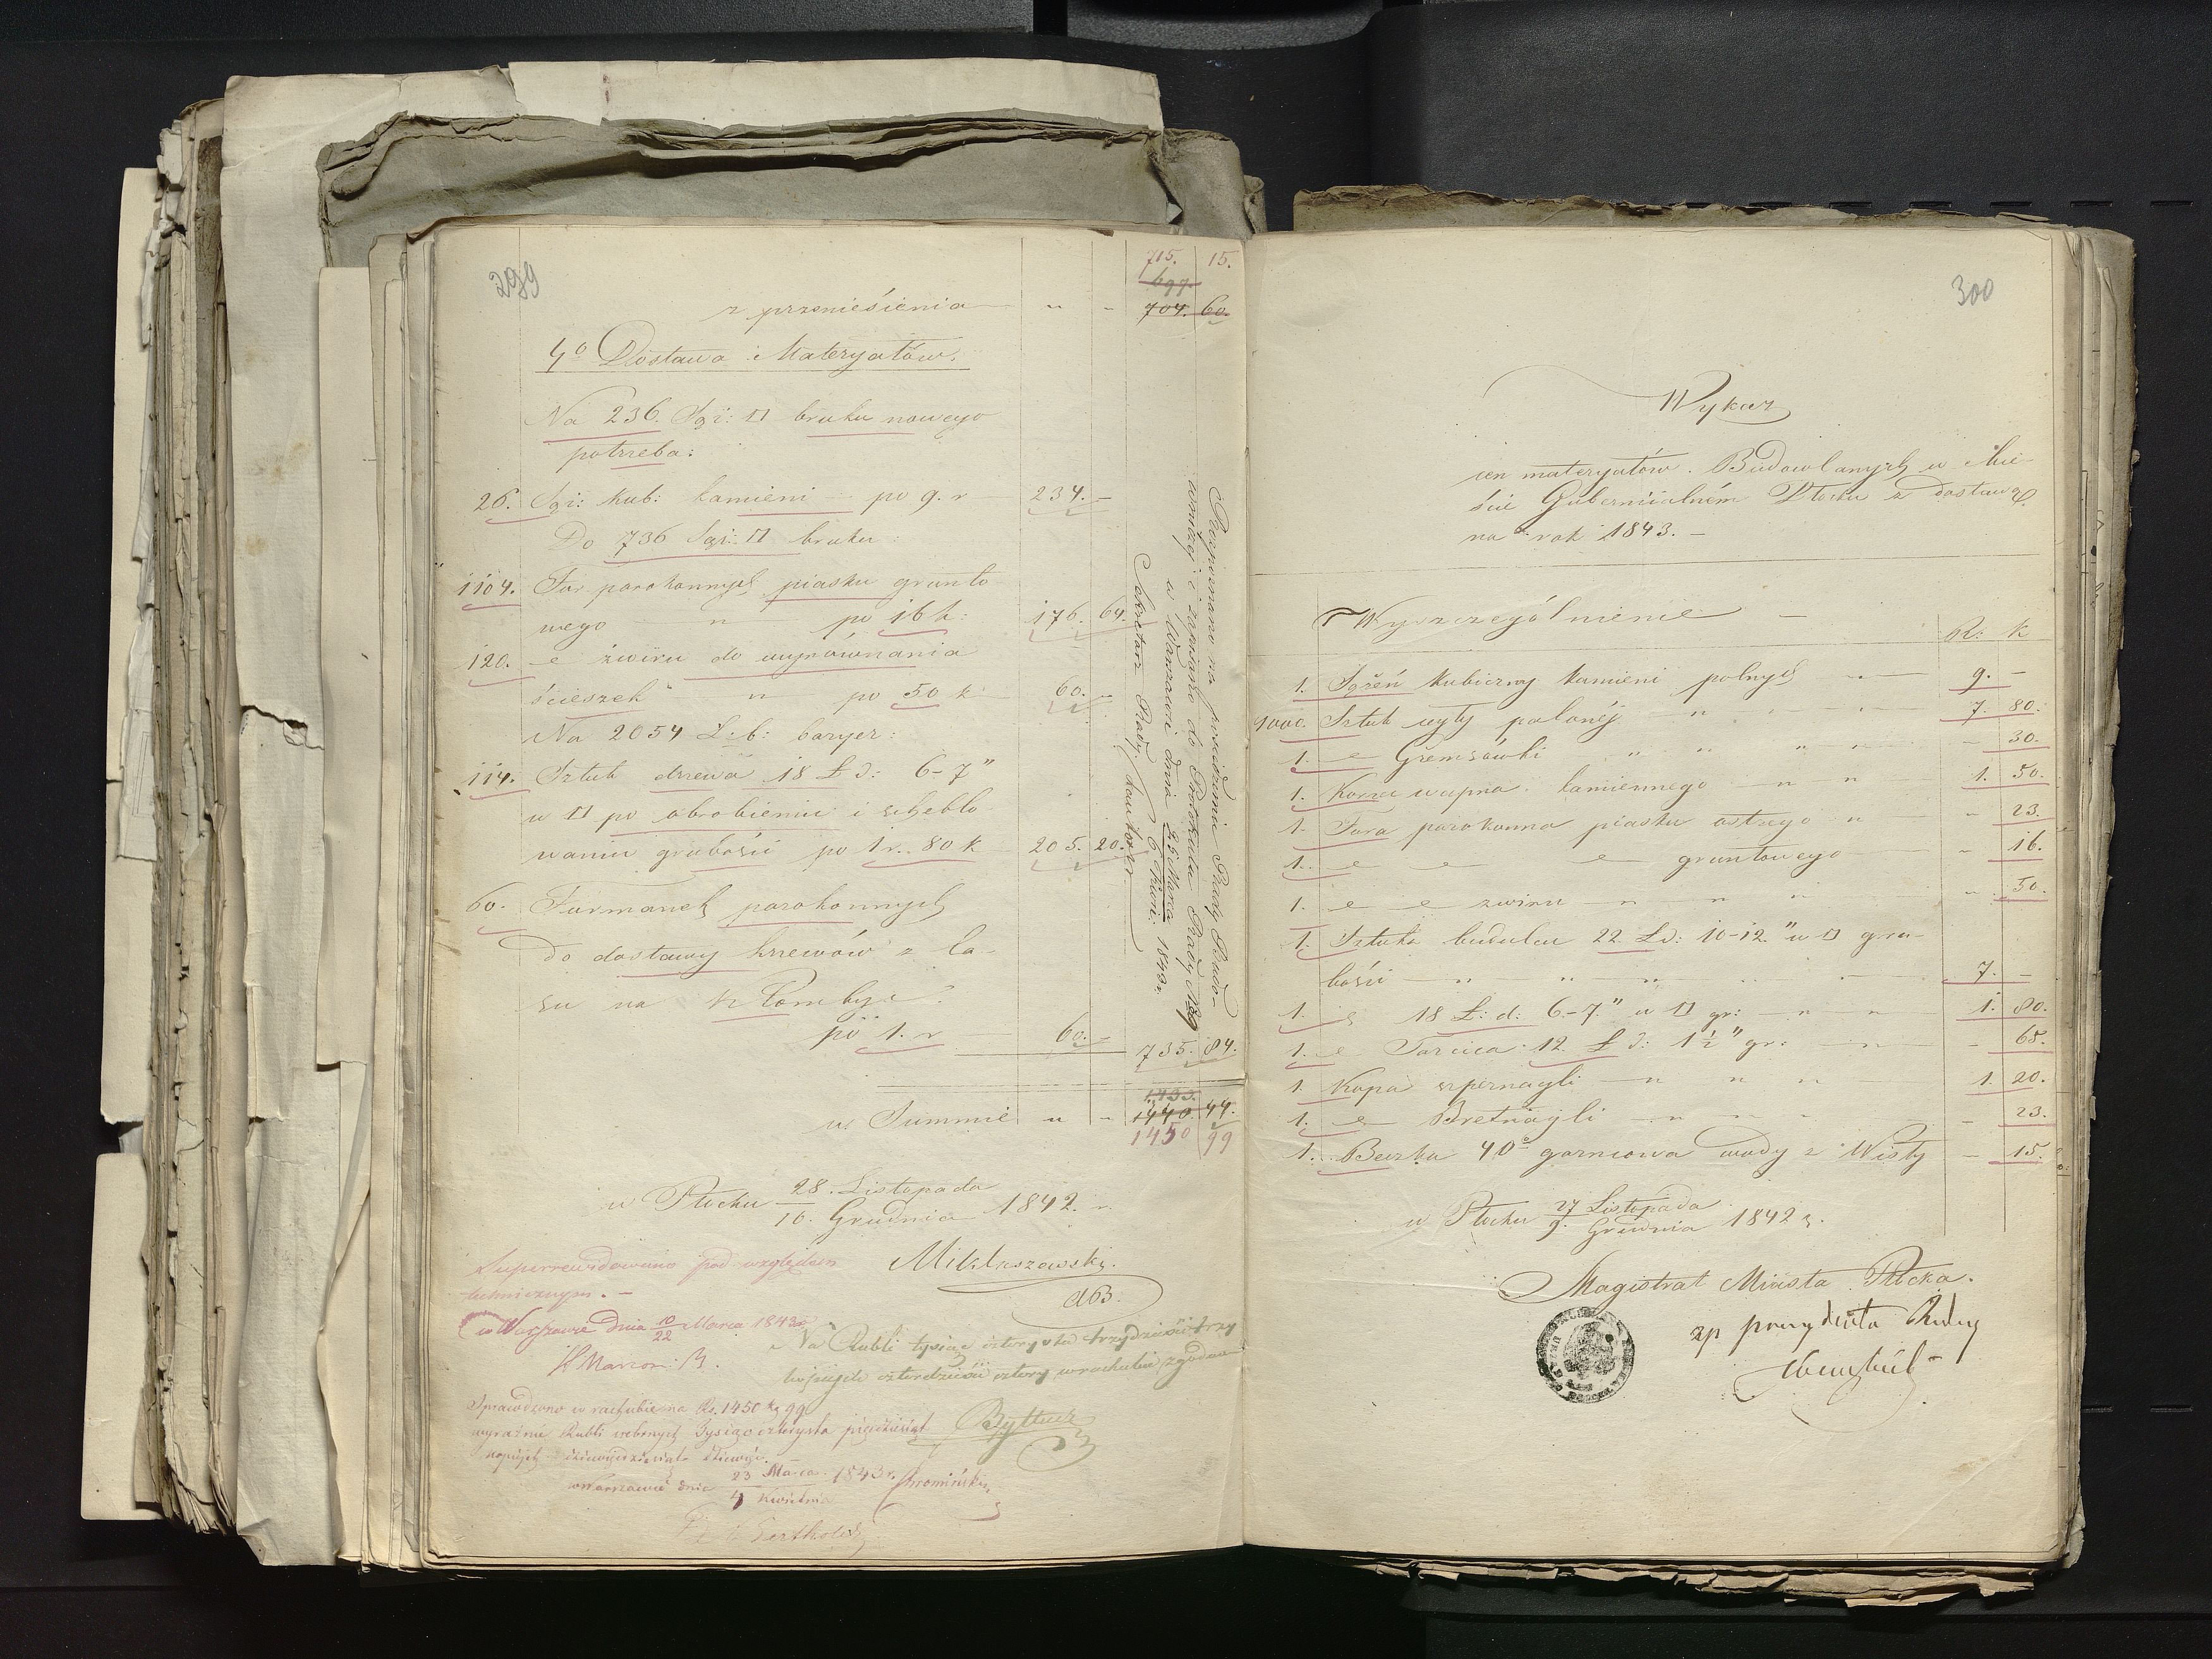 299
715. 15.
697.
z przeniesienia " - 704. 60.
4o Dostawa Materyałów.
Na 236. Sąż: □ bruku nowego
potrzeba:
26. Sąż: kub: kamieni po 9. r 234. -
Do 736 Sąż: □ bruku:
1104. Fur parokonnych piasku grunto-
wego " po 16 k: 176. 64.
120. żwiru do wyrównania
ścieszek " po 50 k 60. -
Na 2054 Ł: b: baryer:
114. Sztuk drzewa 18 Ł d: 6-7"
w □ po obrobieniu i
waniu grubości po 1 r. 80 k 205. 20.
60. Furmanek parokonnych
do dostawy krzewów z la-
su na
po 1. r 60. -
735. 84.
1433.
w Summie " - 1440. 44.
1450 99
w Płocku 28. Listopada
10. Grudnia 1842. r.
Superrewidowano pod względem
technicznym. -
w Warszawie dnia 10/22 Marca 1843 r.
H Marconi B.
Mikłaszewski.
AB.
Na Rubli tysiąc czterysta trzydzieści trzy
kopiejek czterdzieści cztery w rachubie zgodno
Sprawdzono w rachubie na Rs. 1450 k. 99
wyraźnie Rubli srebrnych Tysiąc czterysta pięćdziesiąt
kopiejek dziewięćdziesiąt dziewięć.
w Warszawie dnia 23 Marca
4 Kwietnia 1843 r.
Rozpoznano na posiedzeniu Rady Budo-
wniczej i zapisano do Protokułu Rady No
w Warszawie dnia 25 Marca
6 Kwiet: 1843 r.
Sekretarz Rady
300
Wykaz
cen materyałów Budowlanych w Mie-
ście Gubernialném Płocku z dostawą
na rok 1843. -
Wyszczególnienie - R: k
1. Sążeń kubiczny kamieni polnych " 9. -
1000. Sztuk cegły palonéj " 7. 80.
1. Gzemsówki " " " " - 30.
1. Korzec wapna kamiennego " " 1. 50.
1. Fura parokonna piasku ostrego " - 23.
1. gruntowego - 16.
1. żwiru " " " " 50.
1. Sztuka budulcu 22. Ł d: 10-12." w □ gru-
bości " " " " 7. -
1. 18 Ł: d: 6-7." w □ gr: " " 1. 80.
1. Tarcica 12 Ł d: 1½" gr: " - 65.
1. Kopa szpernagli " " " 1. 20.
1. Bretnagli " " - - 23.
1. Beczka 40o garncowa wody z Wisły - 15.
w Płocku 27 Listopada
9. Grudnia 1842 r.
Magistrat Miasta Płocka.
zp prezydenta Radny